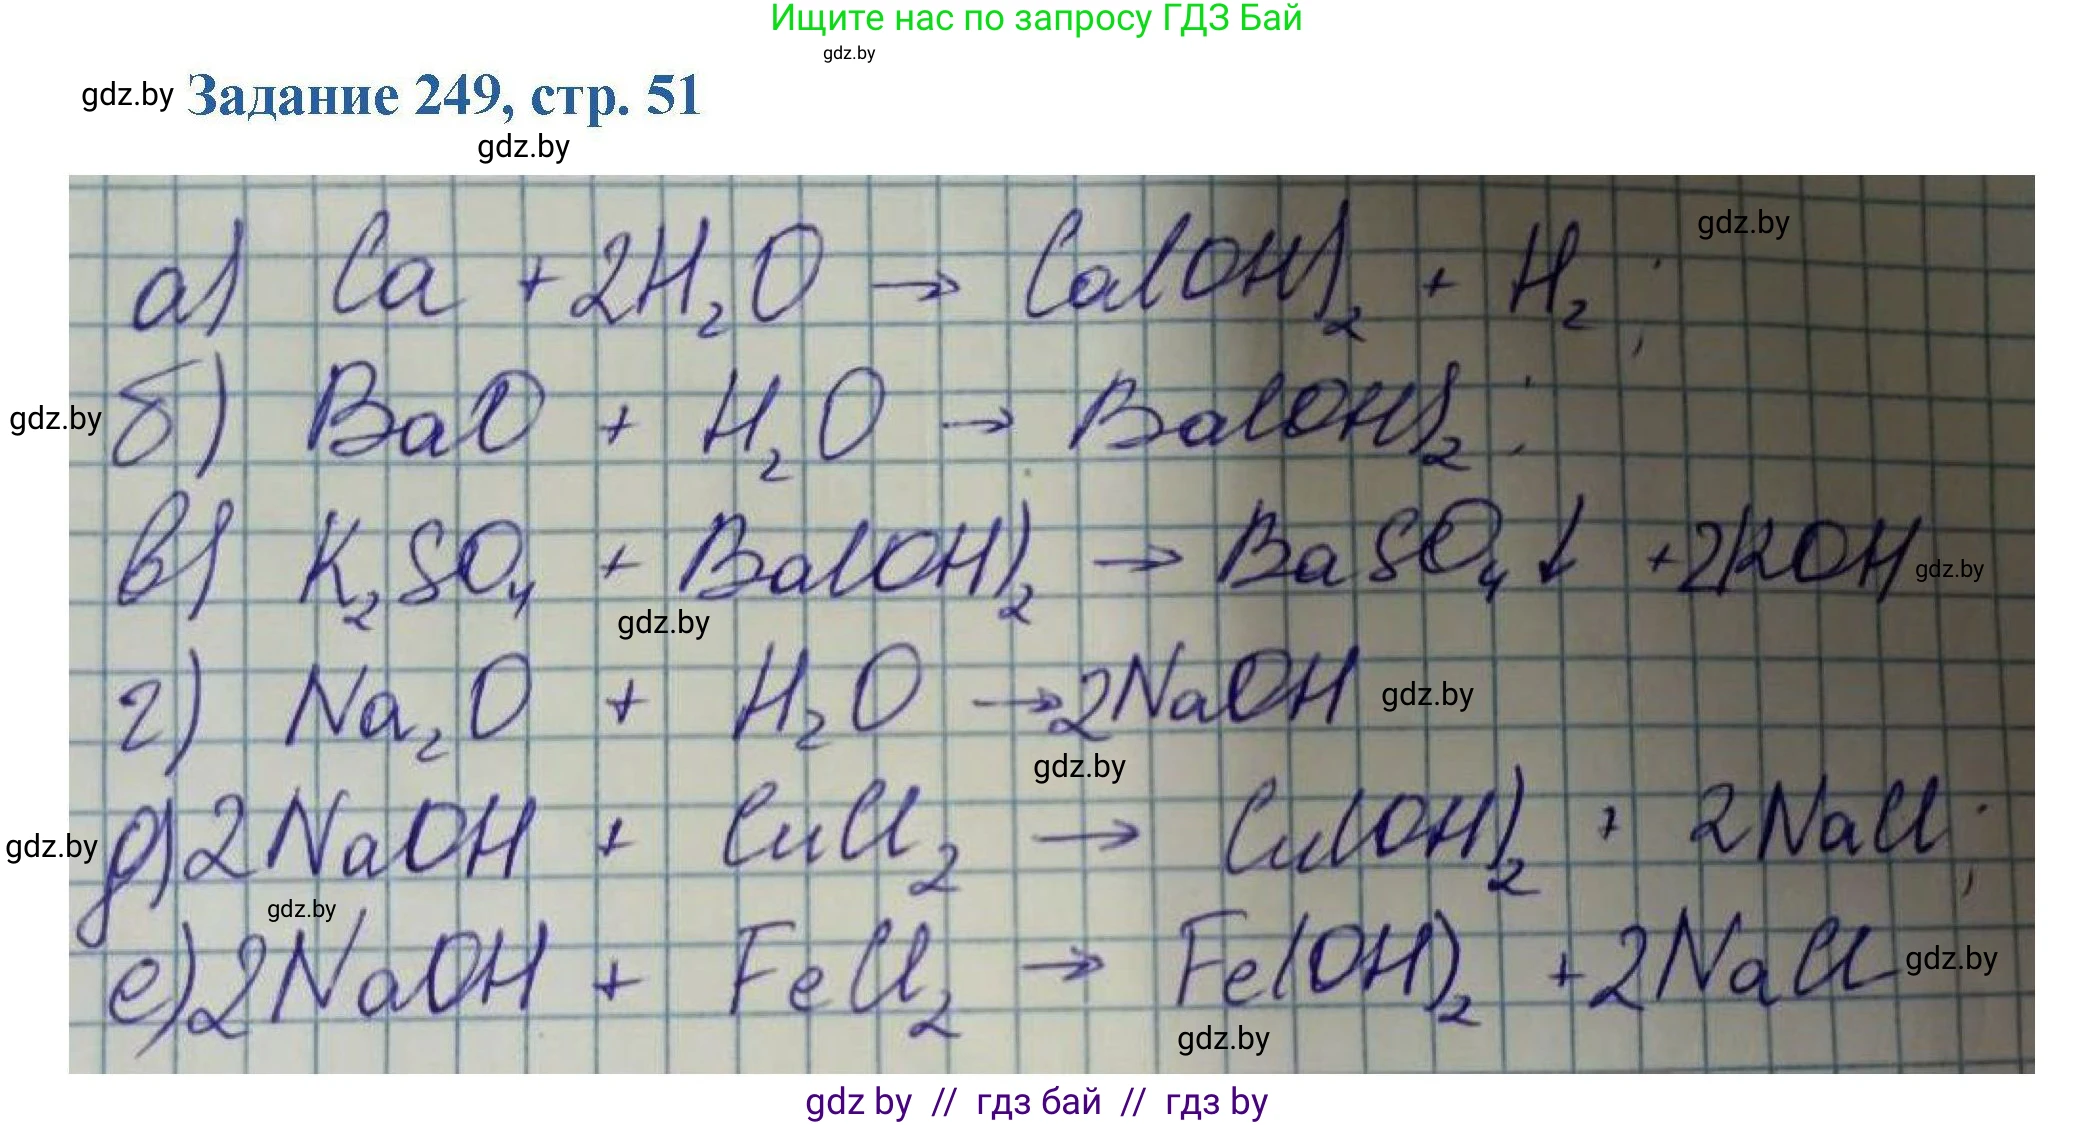 Ищите нас по запросу ГДЗ Бай
gdz.by
gdz.by Задание 249, стр. 51
gdz.by
gdz.by
а) Ca + 2H₂O → Ca(OH)₂ + H₂;
gdz.by б) BaO + H₂O → Ba(OH)₂;
в) K₂SO₄ + Ba(OH)₂ → BaSO₄↓ + 2KOH gdz.by
gdz.by
г) Na₂O + H₂O → 2NaOH gdz.by
gdz.by
gdz.by д) 2NaOH + CuCl₂ → Cu(OH)₂ + 2NaCl;
gdz.by
е) 2NaOH + FeCl₂ → Fe(OH)₂ + 2NaCl gdz.by
gdz.by
gdz by // гдз бай // гдз by